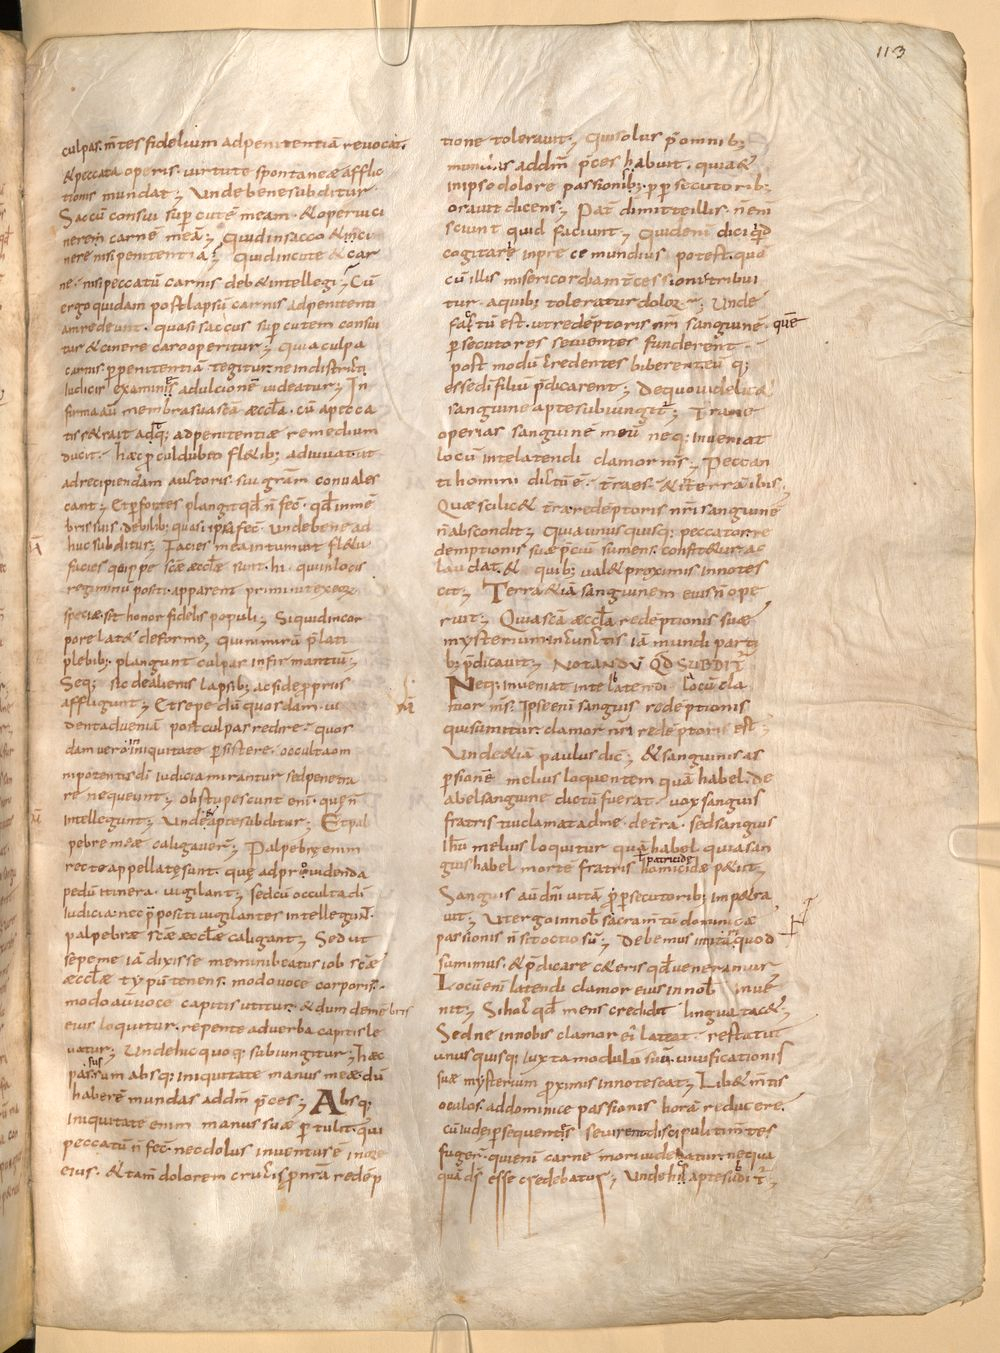 113
culpas. m̄tes fidelium ad penitentiā revocat.
& peccata operis. virtute spontaneæ afflic
tionis mundat; Unde bene subditur.
Saccū consui sup cutē meam. & operui ci
nerem carnē meā; Quid in sacco & in ci
nere nisi penitentia; Quid in cute & car
ne. nisi peccatū carnis deb& intellegi; Cū
ergo quidam post lapsū carnis ad penitenti
am redeunt. quasi saccus sup cutem consui
tur & cinere caro operitur; Quia culpa
carnis p penitentiā tegitur. ne in districti
iudicis examine ad ulcionē videatur; In
firma aū membra sua scā æccła. cū a pecca
tis retrait atq; ad penitentiæ remedium
ducit. hæc p culdubio fl&ib; adiuvat. ut
ad recipiendam auctoris sui grām convales
cant; Et p fortes plangit qd̄ n̄ fec̄. qd̄ in mē
bris suis debilib; quasi ipsa fec̄. Unde bene ad
huc subditur; Facies mea intumuit fl&u
facies quippe scæ æccłæ sunt. hi. qui in locis
regiminū positi apparent primi. ut ex eor
specie. sit honor fidelis populi; Si quid in cor
pore lat& deforme, qui nimirū p̄lati
plebib; plangunt culpas infirmantiū;
Seq; sic de alienis lapsib; ac si de p priis
affligunt; Et sepe dū quosdam vi
dent ad veniā post culpas redire. quos
dam vero in iniquitate p sistere. occulta om
nipotentis dī iudicia mirantur sed penetra
re nequeunt; obstupescunt enī. que n̄
intellegunt; Unde apte subditur; Et pal
pebre meæ caligaver̄; Palpebrę enim
recte appellatę sunt. quę ad p̄ videnda
pedū itinera. vigilant; sed cū occulta dī
iudicia nec p̄positi vigilantes intellegunt.
palpebræ scæ æccłæ caligant; Sed ut
sepe me iā dixisse memini beatus iob scæ
æccłæ typū tenens. modo voce corporis.
modo aū voce capitis utitur. & dum de mēbris
eius loquitur. repente ad verba capitis le
vatur; Unde hic quoq; subiungitur; hæc
passus sum absq; iniquitate manus meæ. dū
haberē mundas ad dm̄ p̄ces; Absq;
iniquitate enim manus suæ p tulit. qui
peccatū n̄ fec̄. nec dolus inventus ē in ore
eius. & tam̄ dolorem crucis p nr̄a redēp
tione toleravit; Qui solus p̄ omnib;
mundas ad dm̄ p̄ces habuit. quia &
in ipso dolore passionis; p p secutorib;
oravit dicens; Pat̄ dimitte illis. n̄ enī
sciunt quid faciunt; Quid enī dici qd
cogitari in prece mundius potest. quā
cū illis misericordiam t̄cessioni tribui
tur. a quib; toleratur dolor; Unde
factū est. ut redēptoris nr̄i sanguinē. quē
p secutores sevientes funderent.
post modū credentes biberent. eū q;
esse dī filiū p̄dicarent; De quo videlic&
sanguine apte subiungit̄; Terra ne
operias sanguinē meū neq; inveniat
locū in te latendi clamor m̄s; Peccan
ti homini dictū ē. t̄ra es. & in terrā ibis;
Quæ scilic& t̄ra redēptoris nr̄i sanguinē
n̄ abscondit; Quia unus quisq; peccator. re
demptionis suæ p̄ciū sumens. confit&ur. ac
laudat. & quib; val& proximis innotes
cit; Terra &iā sanguinem eius n̄ ope
ruit; Quia scā æccła redēptionis suæ
mysterium in cunctis iā mundi partib; p̄dicavit; NOTANDŪ QD̄ SUBDIT̄
Neq; inveniat in te latendi locū cla
mor m̄s. Ipse enī sanguis redēptionis
qui sumitur. clamor nr̄i redēptoris est;
Unde &iā paulus dic̄; & sanguinis as
p sionē melius loquentem quā habel. De
abel sanguine dictū fuerat. vox sanguis
fratris tui clamat ad me. de t̄ra. sed sanguis
ihū melius loquitur quā habel quia san
guis habel mortē fratris homicidæ p&iit;
ł patricidę
Sanguis aū dn̄i vitā p p secutorib; imp&ra
vit; Ut ergo in nob sacram̄tū dominicæ
passionis n̄ sit otiosū; Debemus imitari quod
sumimus. & p̄dicare c&eris qd̄ veneramur.
Locū enī latendi clamor eius in nob inve
nit; Si hoc qd̄ mens credidit lingua tac&;
Sed ne in nobis clamor ei lateat. restat ut
unus quisq; iuxta modulū suū. vivificationis
suæ mysterium proximis innotescat; Lib& m̄tis
oculos. ad dominice passionis horā reducere.
cū iudei p sequentes sevirent. discipuli tim̄tes
fuger̄. qui enī carne mori videbatur. nequa
quā ds̄ esse credebatur; Unde hic apte subdit̄;